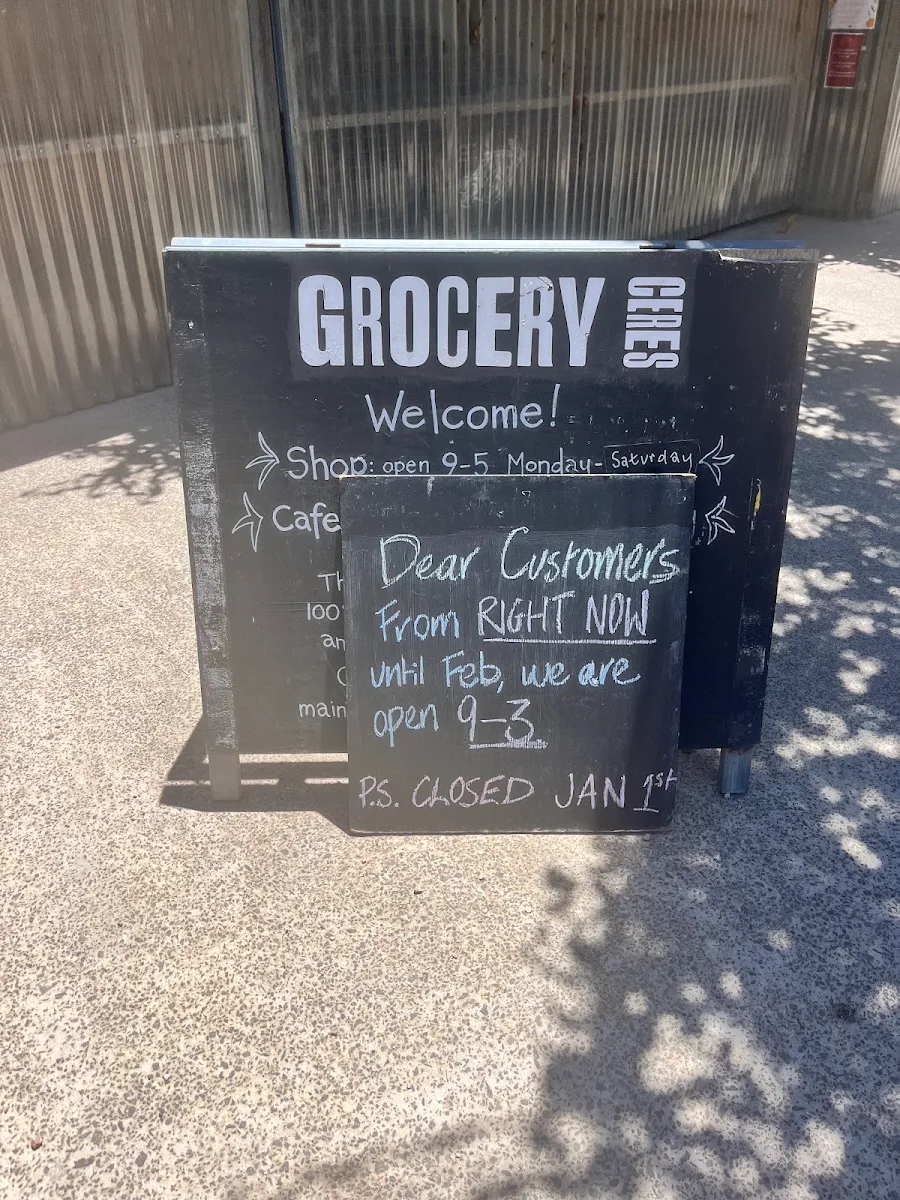 GROCERY CERES
Welcome!
Shop: open 9-5 Monday-Saturday
Cafe
100
main
Dear Customers
From RIGHT NOW
until Feb, we are
open 9-3
P.S. CLOSED JAN 1st